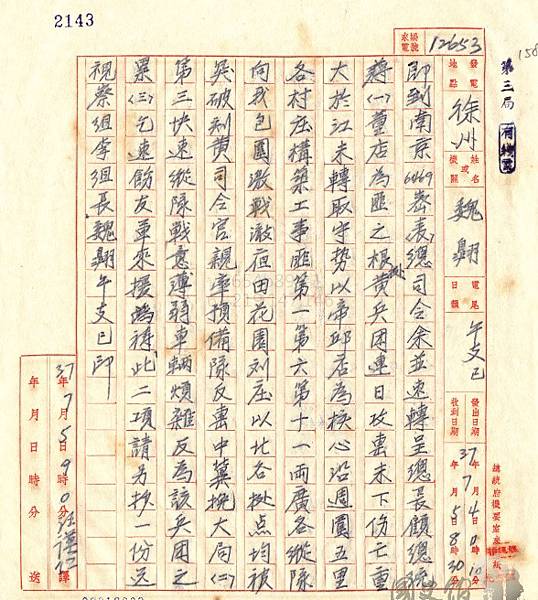 2143
來電編號 12653
第三局
發電地點 徐州
姓名或機關 魏翱
電尾日韻 午支巳
發出日期 37年7月4日0時10分
收到日期 月5日8時30分
總統府機要室來電紙
即到南京6469密表總司令余並速轉呈總長顧總統
蔣(一)董店為匪之根據黃兵團連日攻擊未下傷亡重
大於江未轉取守勢以帝邱店為核心沿週圍五里
各村庄構築工事匪第一第六第十一兩廣各縱隊
向我包圍激戰澈夜田花園刘庄以北各據点均被
突破刻黃司令官親率預備隊反擊中冀挽大局(二)
第三快速縱隊戰意薄弱車輛煩雜反為該兵團之
累(三)乞速飭友軍來援為禱此二項請另抄一份送
視察組李組長魏翱午支巳印
37年7月5日9時0分
年月日時分送